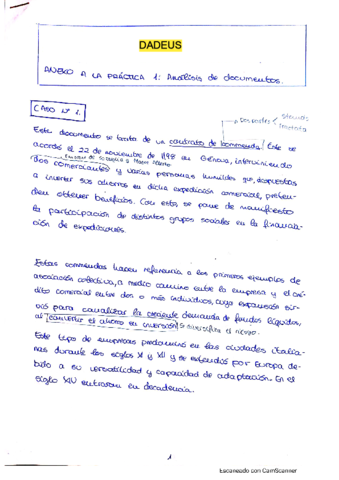 DADEUS
ANEXO A LA PRÁCTICA 1: Análisis de documentos.
CASO Nº 1.
Dos partes
Este documento se trata de un contrato de commenda. Este se
acordó el 22 de noviembre de 1198 en Génova, interviniendo
dos comerciantes y varias personas humildes que, dispuestas
a invertir sus ahorros en dicha expedición comercial, preten-
dían obtener beneficios. Con esto se pone de manifiesto
la participación de distintos grupos sociales en la financia-
ción de expediciones.
Estas commendas hacen referencia a los primeros ejemplos de
asociación colectiva, a medio camino entre la empresa y el cré-
dito comercial entre dos o más individuos, cuya expansión sir-
vió para canalizar la creciente demanda de fondos líquidos,
al convertir el ahorro en inversión y diversifica el riesgo.
Este tipo de empresas predominó en las ciudades italia-
nas durante los siglos X y XII y se extendió por Europa, de-
bido a su versatilidad y capacidad de adaptación. En el
siglo XIV entraron en decadencia.
1
Escaneado con CamScanner